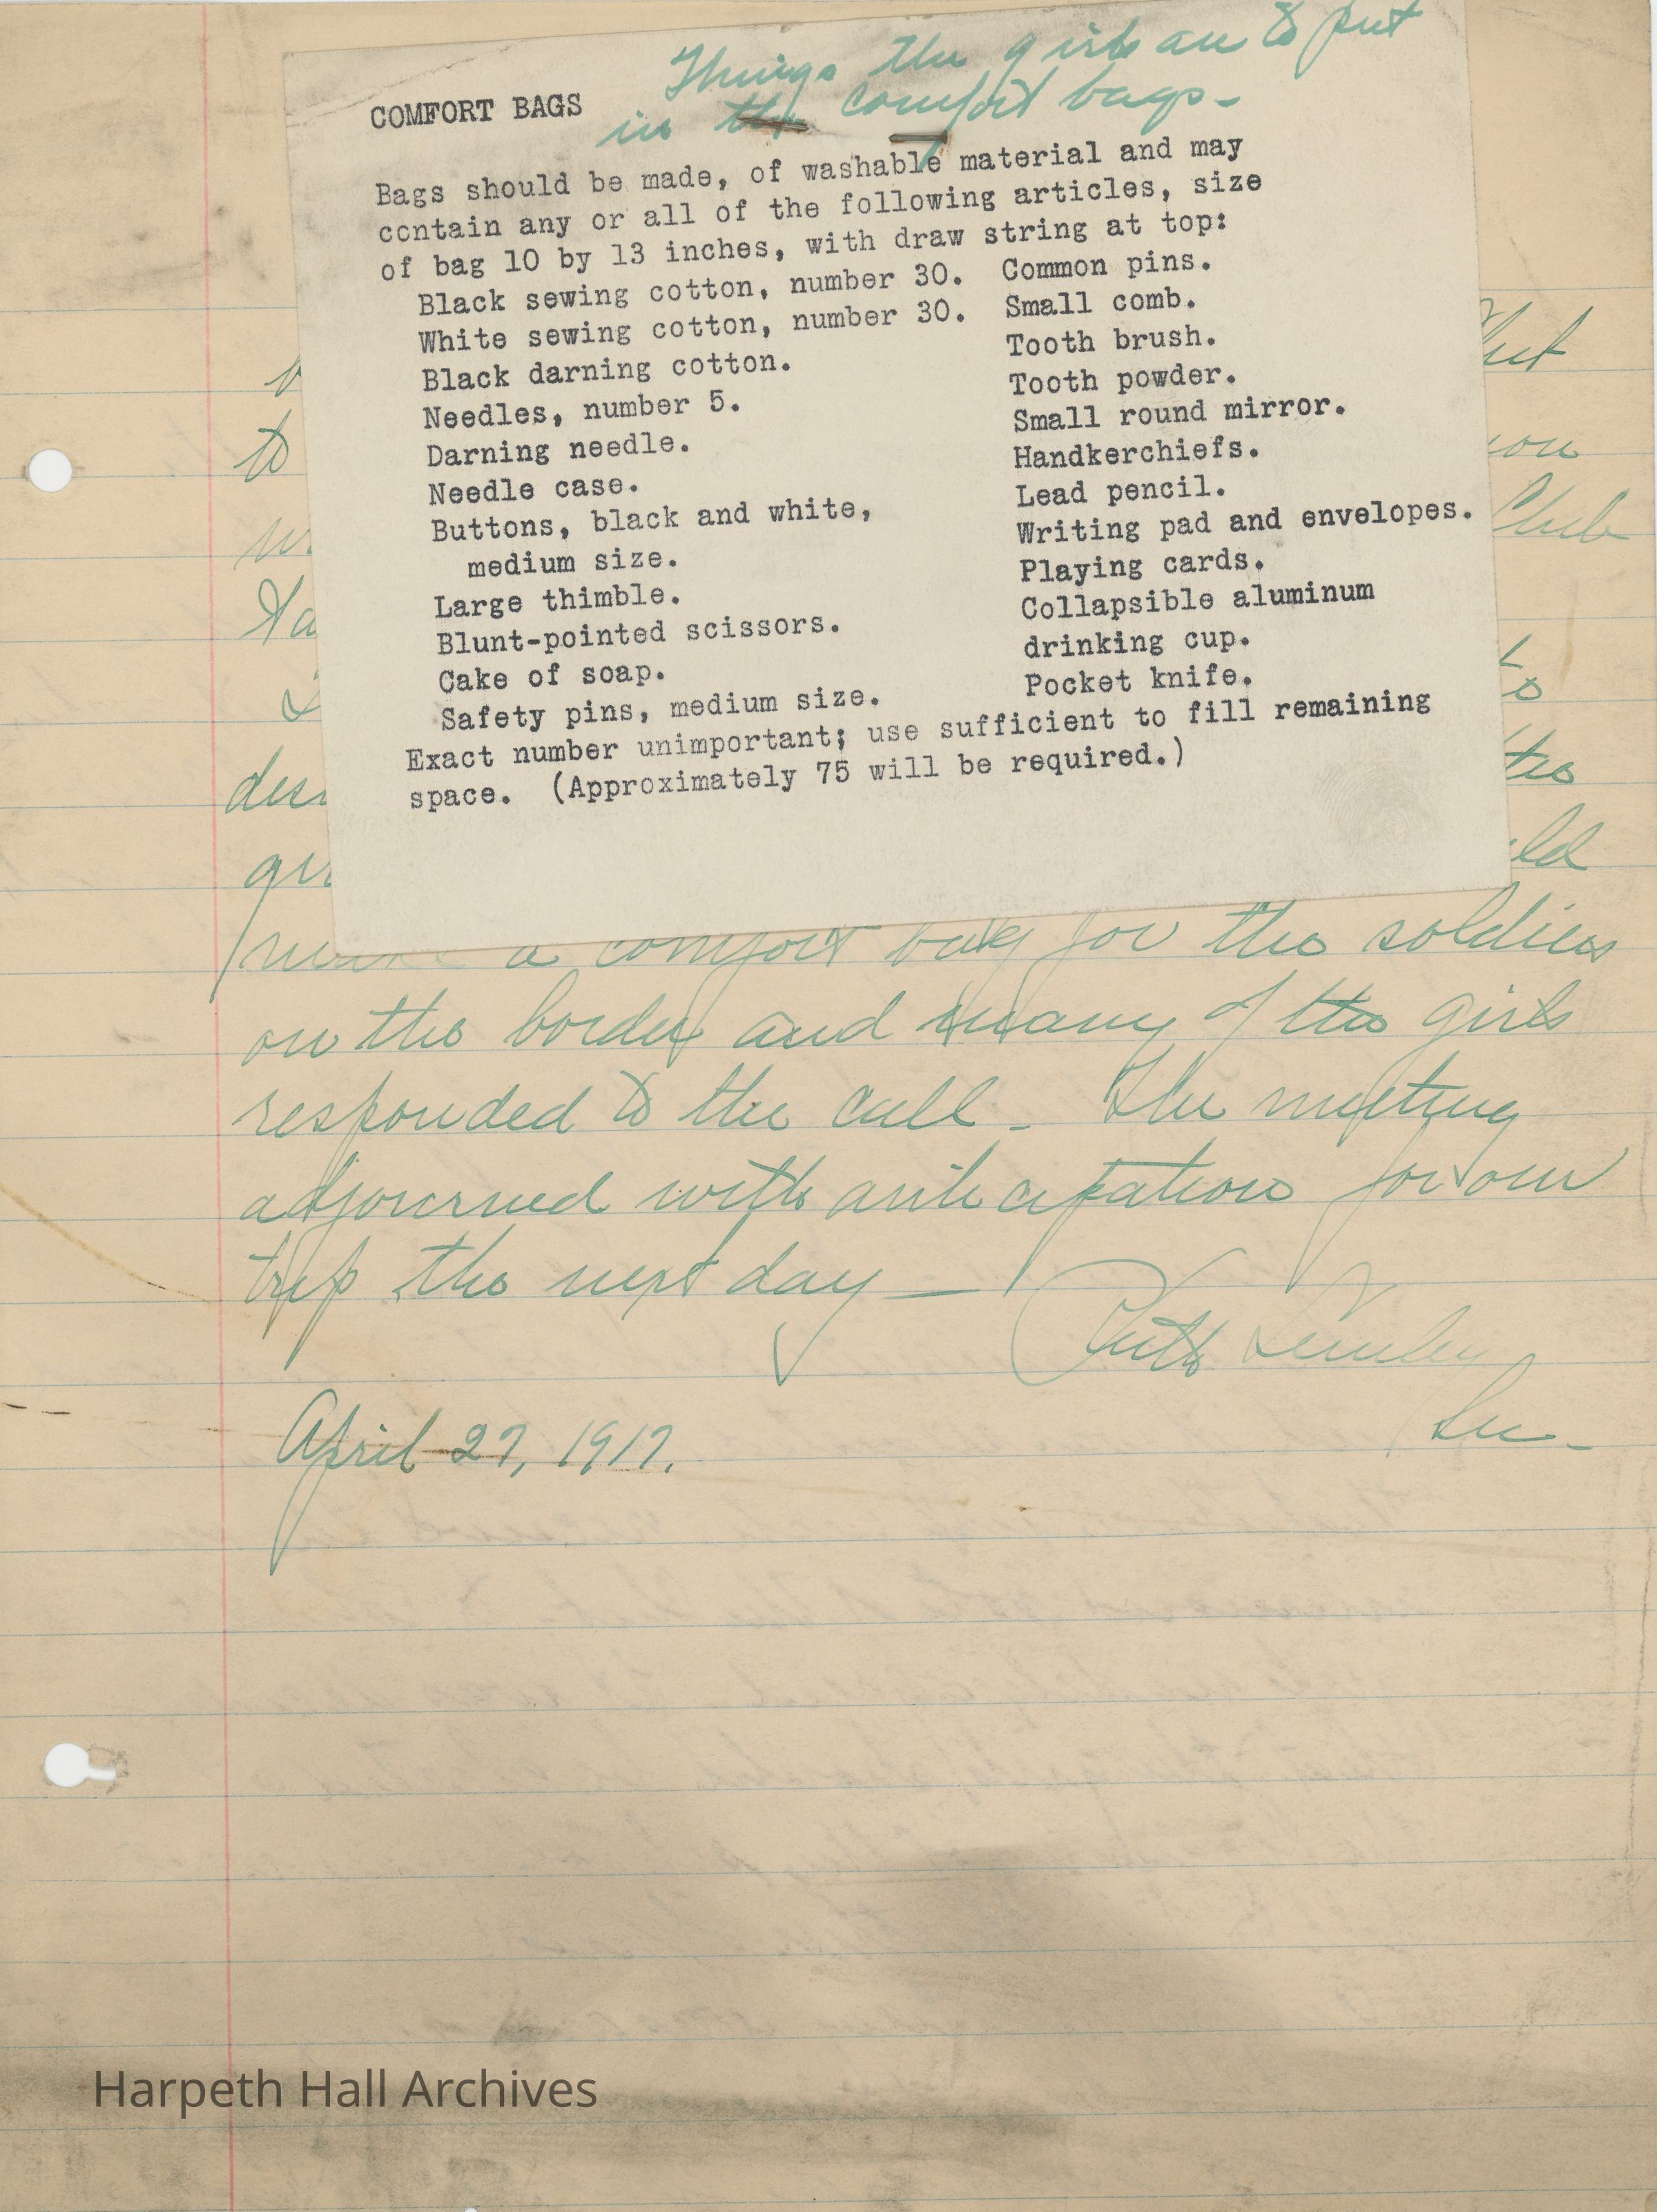 Things the girls are to put
in the comfort bags-
COMFORT BAGS
Bags should be made, of washable material and may
contain any or all of the following articles, size
of bag 10 by 13 inches, with draw string at top:
Black sewing cotton, number 30.
White sewing cotton, number 30.
Black darning cotton.
Needles, number 5.
Darning needle.
Needle case.
Buttons, black and white,
medium size.
Large thimble.
Blunt-pointed scissors.
Cake of soap.
Safety pins, medium size.
Common pins.
Small comb.
Tooth brush.
Tooth powder.
Small round mirror.
Handkerchiefs.
Lead pencil.
Writing pad and envelopes.
Playing cards.
Collapsible aluminum
drinking cup.
Pocket knife.
Exact number unimportant; use sufficient to fill remaining
space. (Approximately 75 will be required.)
to
Club
a comfort bag for the soldiers
on the border and many of the girls
responded to the call - The meeting
adjourned with anticipations for our
trip the next day -
Ruth
Sec-
April 27, 1917.
Harpeth Hall Archives